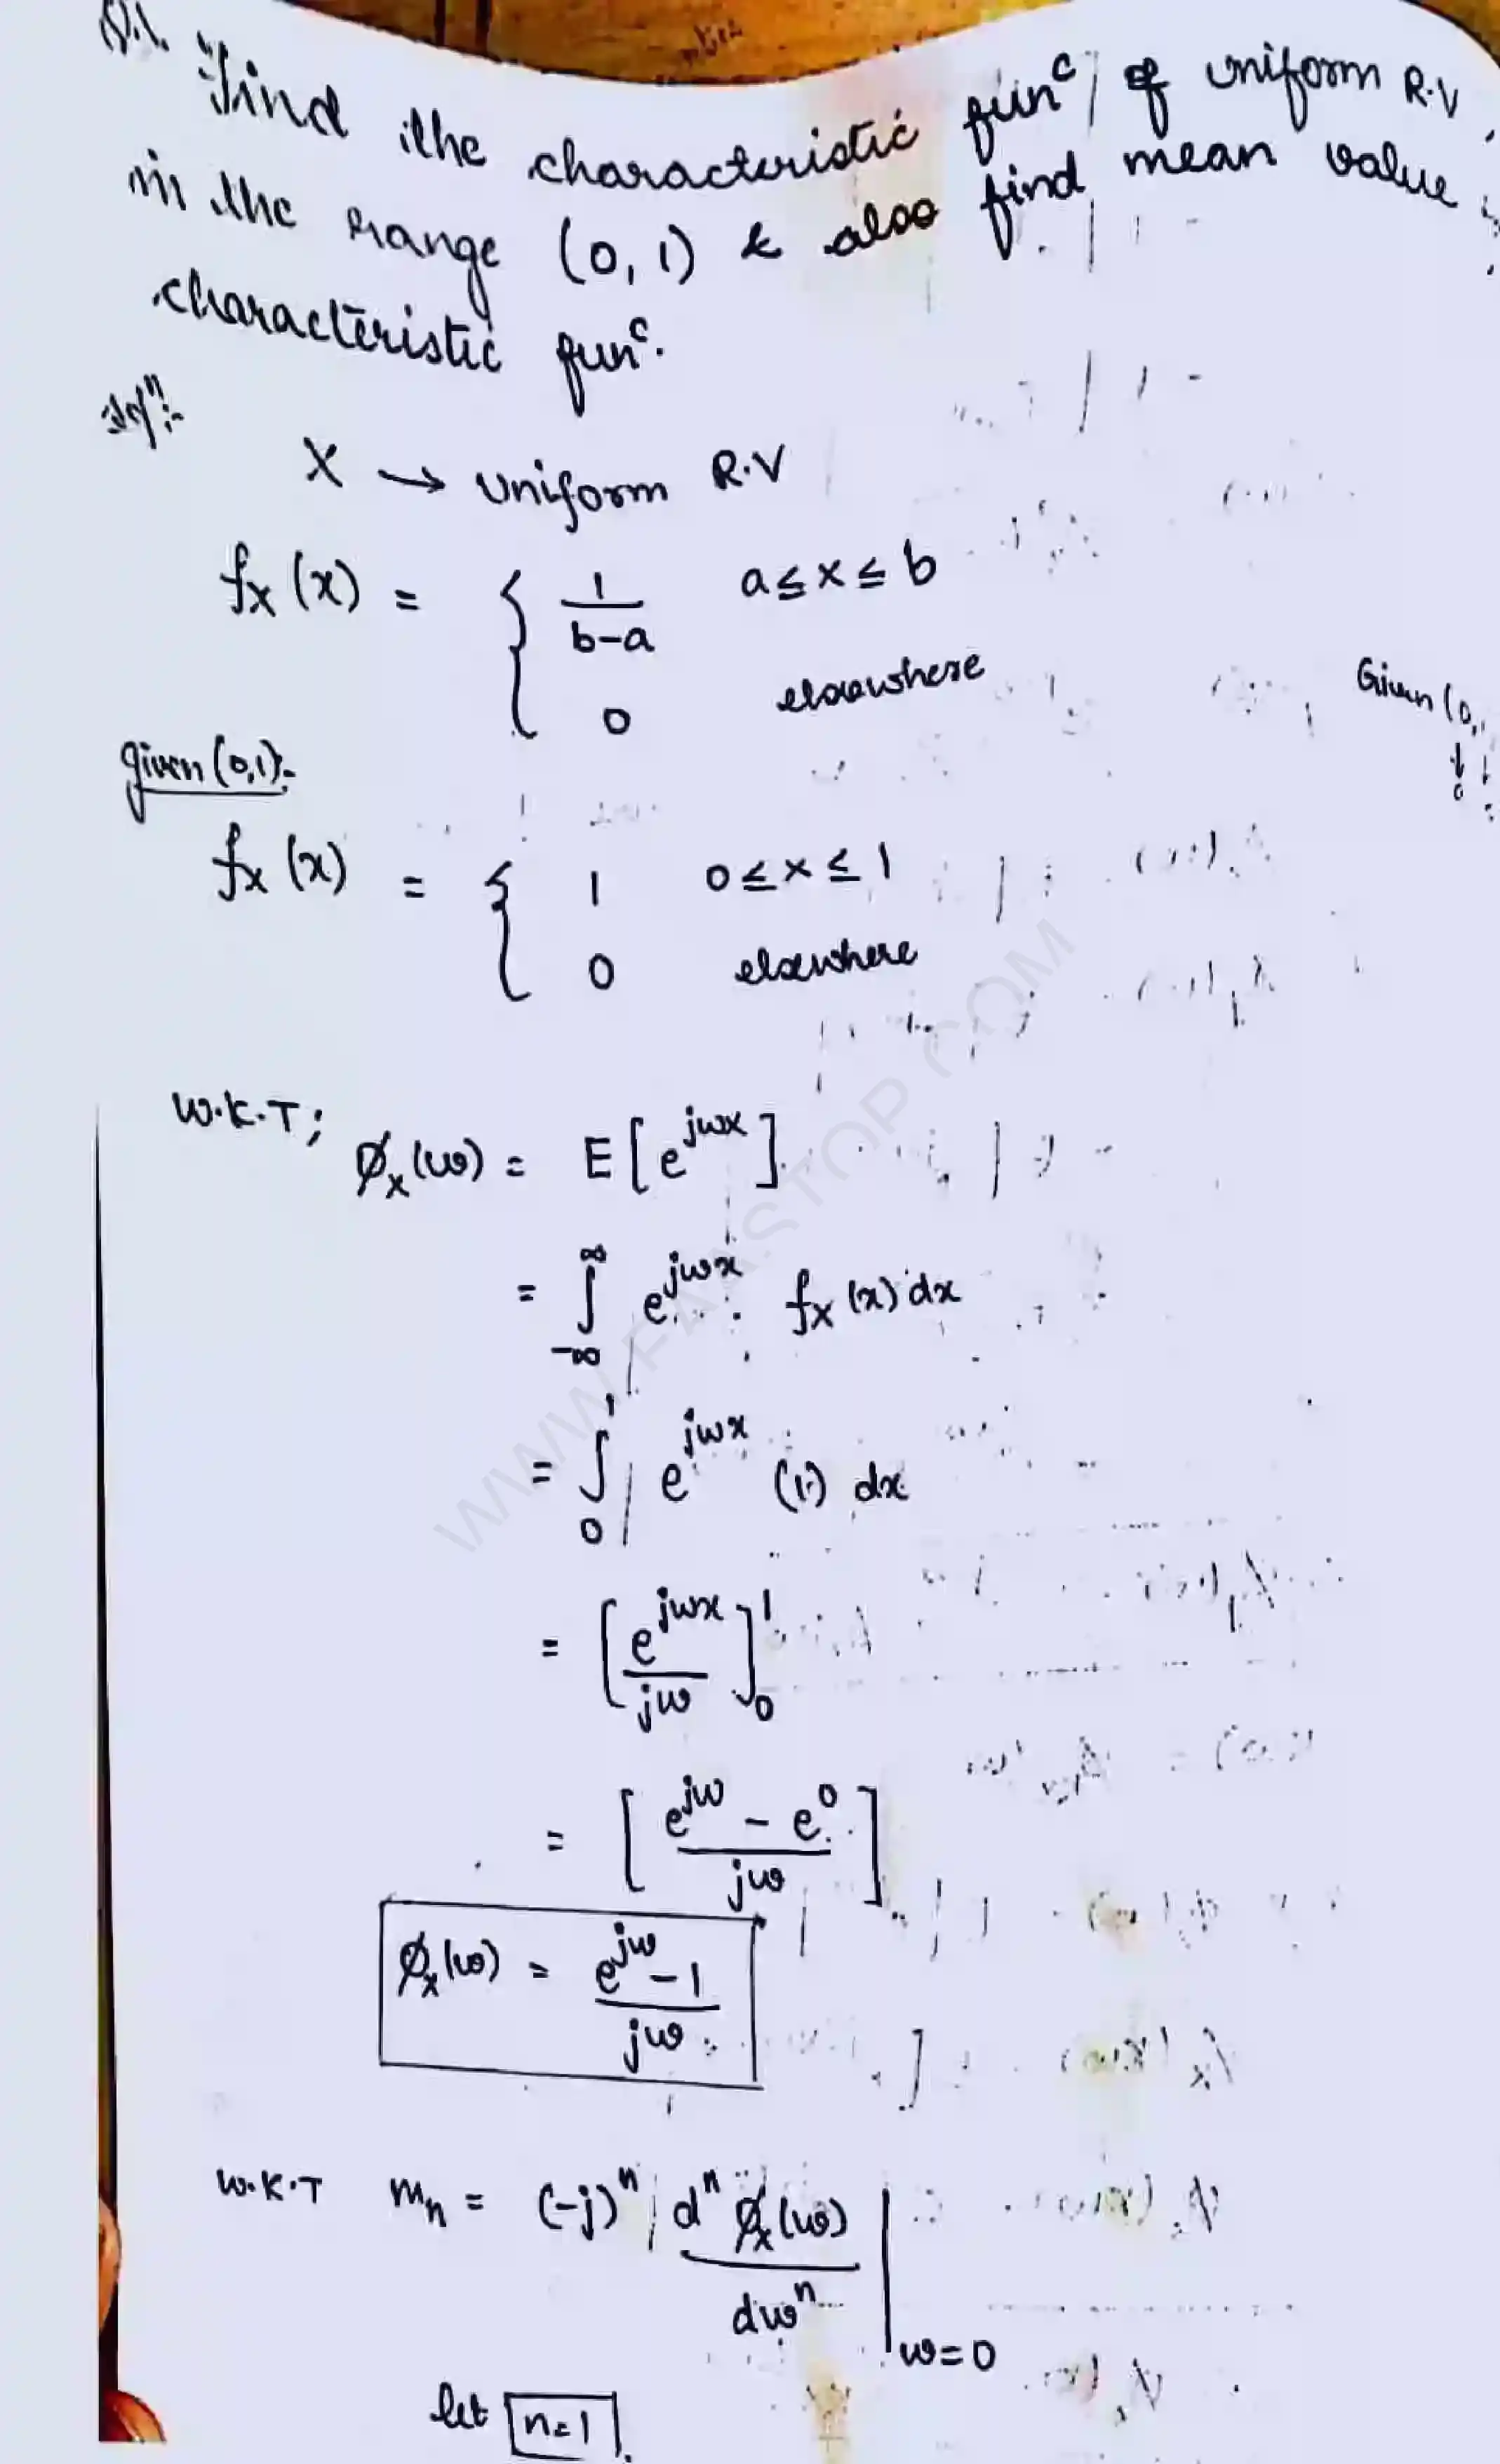 Q.1. Find the characteristic func of uniform R.V
in the range (0,1) & also find mean value
characteristic func.
Solⁿ:-
X → uniform R.V
fx (x) = { 1/(b-a) a ≤ x ≤ b
0 elsewhere
Given (0,
given (0,1):-
fx (x) = { 1 0 ≤ x ≤ 1
0 elsewhere
W.K.T; Øx(ω) = E[e^jωx]
= ∫_-∞^∞ e^jωx . fx (x) dx
= ∫_0^1 e^jωx (1) dx
= [e^jωx/jω]_0^1
= [(e^jω - e^0)/jω]
Øx(ω) = (e^jω - 1)/jω
W.K.T mn = (-j)^n d^n Øx(ω)/dω^n |ω=0
let n=1
WWW.FAASTOP.COM